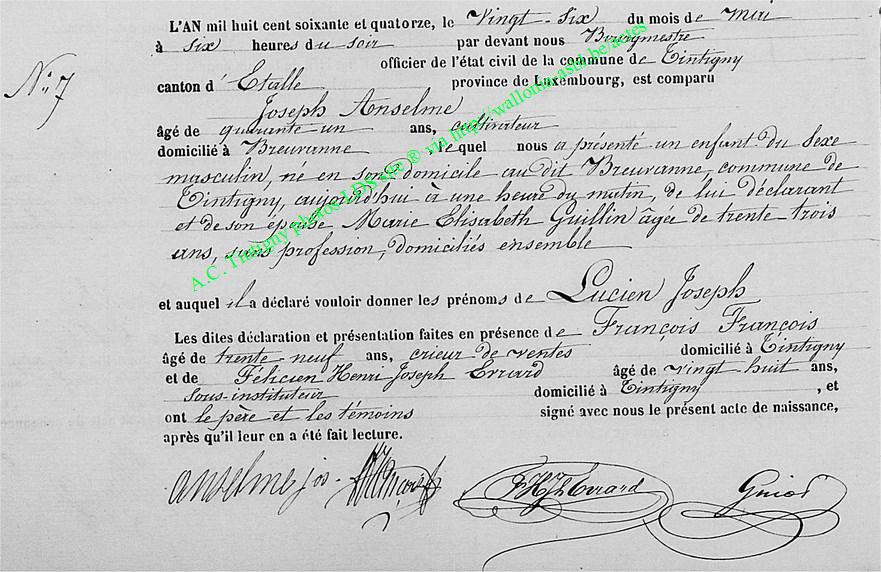 L'AN mil huit cent soixante et quatorze, le Vingt-Six du mois de Mai
à Six heures du soir par devant nous Bourgmestre
officier de l'état civil de la commune de Tintigny
N° 7
canton d'Etalle province de Luxembourg, est comparu
Joseph Anselme
âgé de quarante-un ans, cultivateur
domicilié à Breuvanne, lequel nous a présenté un enfant du Sexe
masculin, né en son domicile au dit Breuvanne, commune de
Tintigny, aujourd'hui à une heure du matin, de lui déclarant
et de son épouse Marie Elisabeth Guillin âgée de trente-trois
ans, sans profession, domiciliés ensemble
et auquel il a déclaré vouloir donner les prénoms de Lucien Joseph
Les dites déclaration et présentation faites en présence de François François
âgé de trente-neuf ans, crieur de ventes domicilié à Tintigny
et de Félicien Henri Joseph Errard âgé de vingt huit ans,
sous-instituteur domicilié à Tintigny, et
ont le père et les témoins signé avec nous le présent acte de naissance,
après qu'il leur en a été fait lecture.
anselme jos. FHJh Errard
A.C. Tintigny photos LDS site ® via http://wallonia.asbl.be/actes